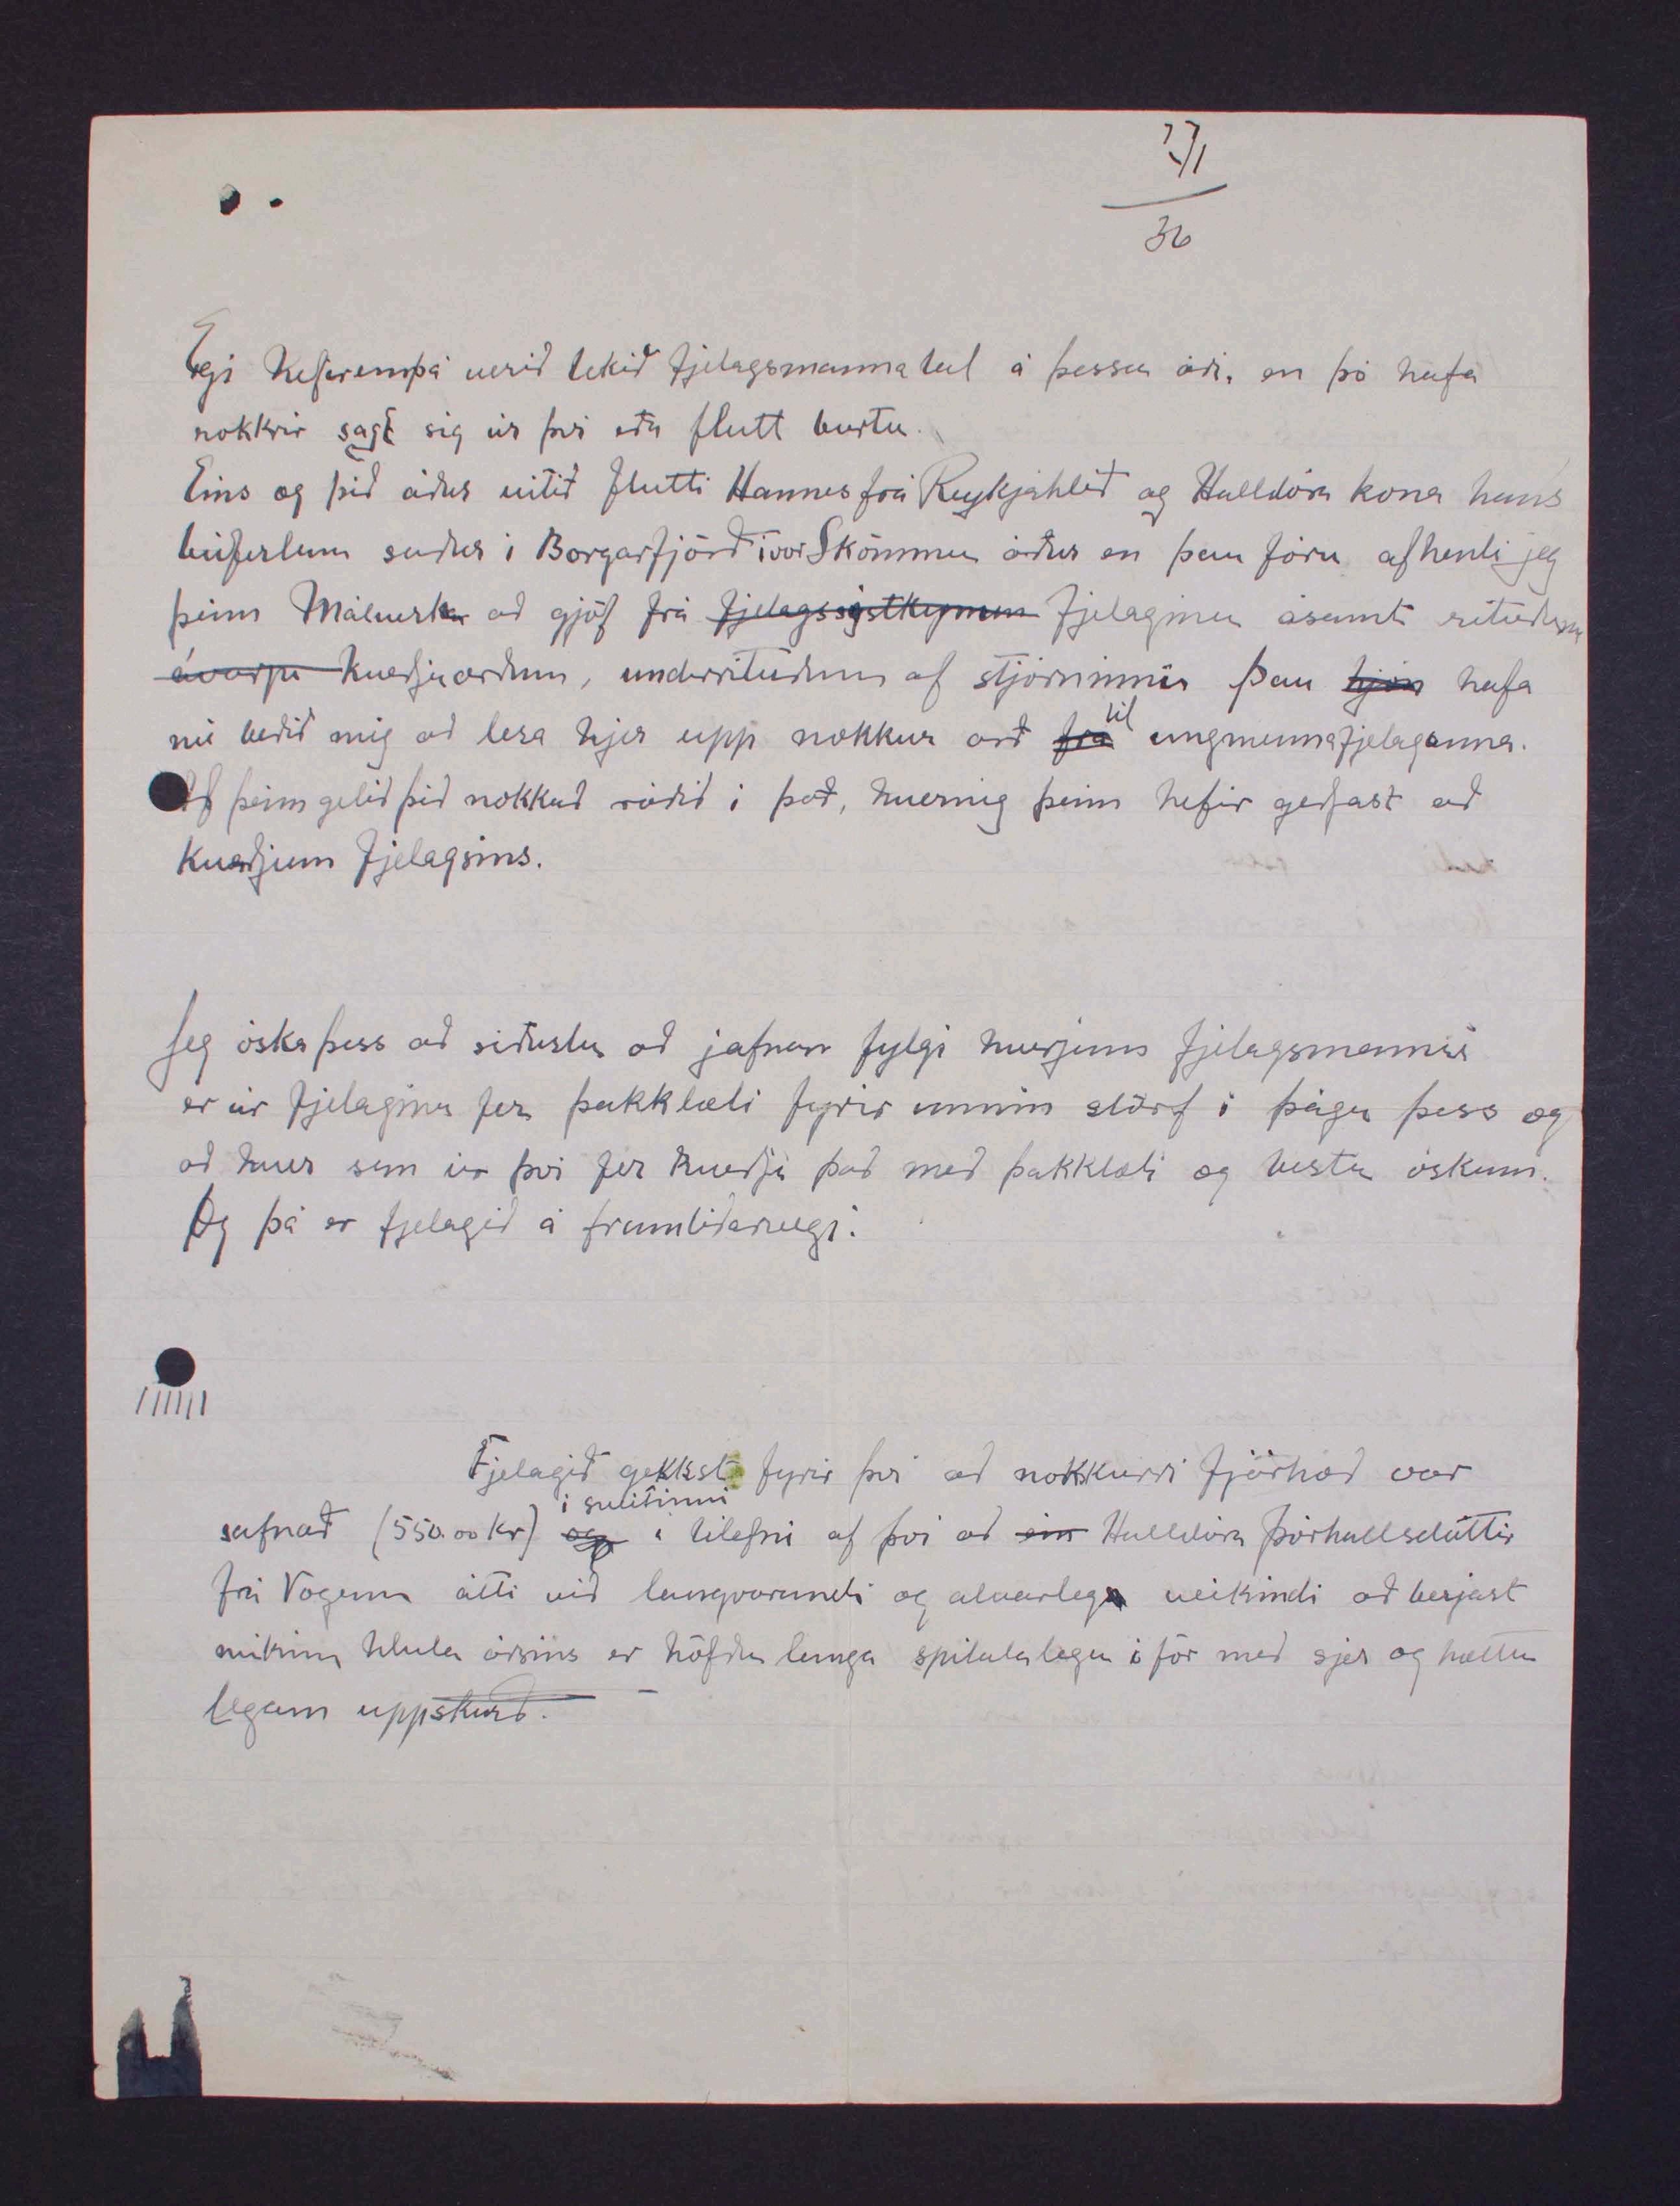 36
Egi hefir ennþá verið tekið fjelagsmannatal á þessu ári, en þó hafa
nokkrir sagt sig úr því eða flutt burtu.
Eins og þið áður vitið flutti Hannes frá Reykjahlíð og Halldóra kona hans
búferlum suður í Borgarfjörð í vor Skömmu áður en þau fóru afhenti jeg
þeim Málverk að gjöf frá fjelagssystkynum fjelaginu ásamt rituðum
ávarpi kveðjuorðum, undirrituðum af stjórninni Þau hjón hafa
nú beðið mig að lesa hjer upp nokkur orð frá til ungmennafjelaganna.
Af þeim getið þið nokkuð ráðið í það, hvernig þeim hefir geðjast að
kveðjum fjelagsins.
Jeg óska þess að síðustu að jafnan fylgi hverjum fjelagsmanni
er úr fjelaginu fer þakklæti fyrir unnin störf í þágu þess og
að hver sem úr því fer kveðji það með þakklæti og bestu óskum.
Og þá er fjelagið á framtíðarvegi.
Fjelagið gekkst fyrir því að nokkurri fjárhæð var
i sveitinni
safnað (550.00 kr) og í tilefni af því að ein Halldóra Þórhallsdóttir
frá Vogum átti við langvarandi og alvarleg veikindi að berjast
mikinn hluta ársins er höfðu langa spítalalegu í för með sjer og hættu
legum uppskurð.